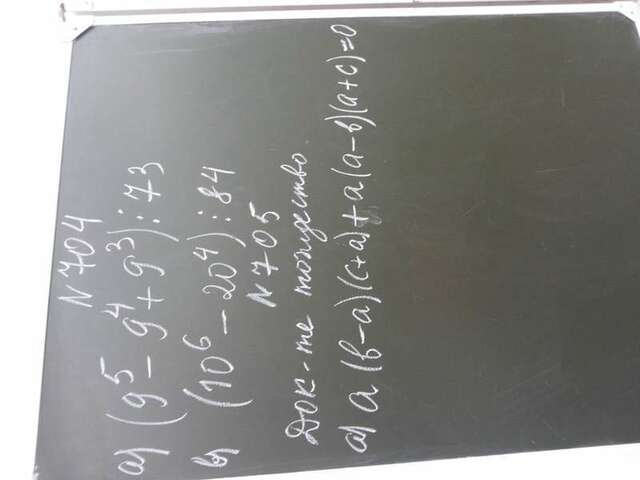 N 704
а) (9⁵ - 9⁴ + 9³) ⋮ 73
в) (10⁶ - 20⁴) ⋮ 84
N 705
Док-те тождество.
а) a (в-a)(c+a) + a(a-в)(a+c)=0